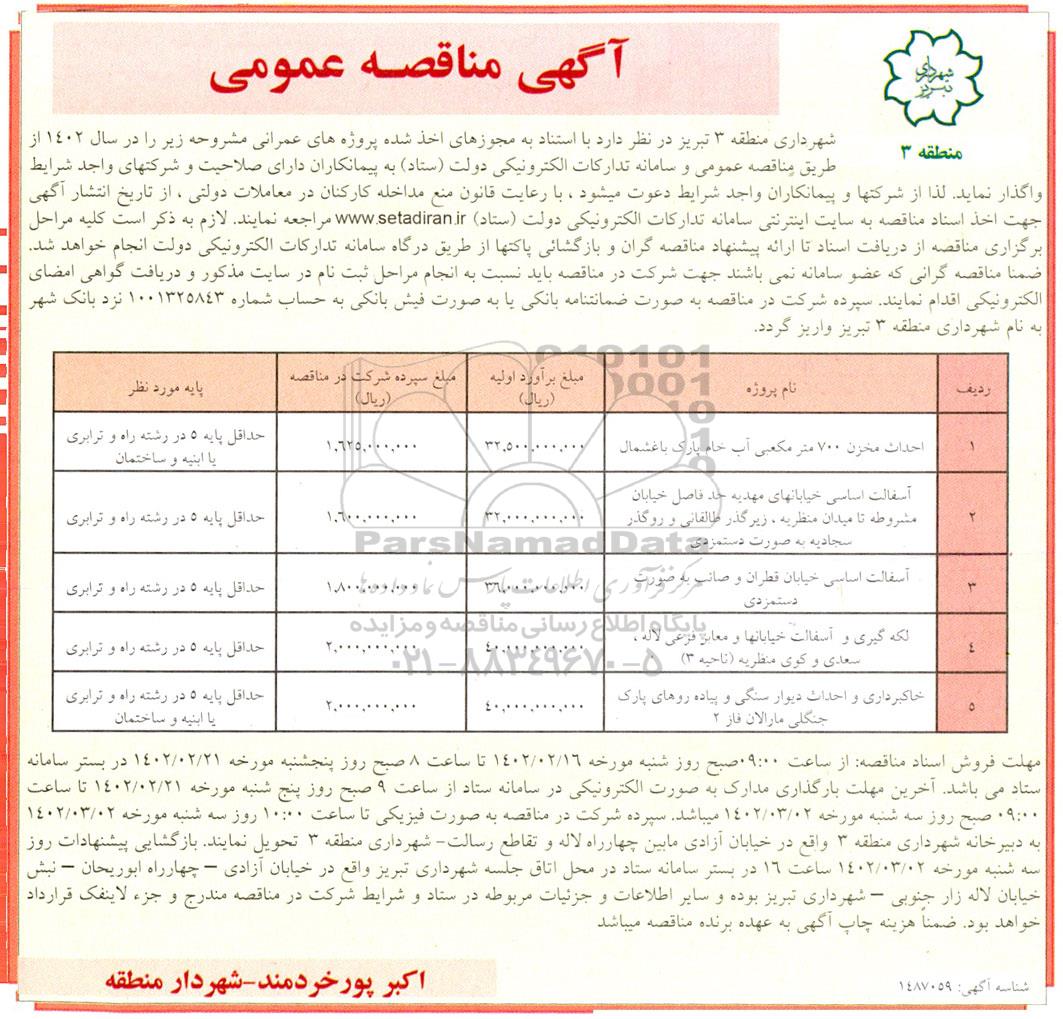 آگهی مناقصه عمومی
شهرداری تبریز
منطقه ۳
شهرداری منطقه ۳ تبریز در نظر دارد با استناد به مجوزهای اخذ شده پروژه های عمرانی مشروحه زیر را در سال ۱۴۰۲ از
طریق مناقصه عمومی و سامانه تدارکات الکترونیکی دولت (ستاد) به پیمانکاران دارای صلاحیت و شرکتهای واجد شرایط
واگذار نماید. لذا از شرکتها و پیمانکاران واجد شرایط دعوت میشود ، با رعایت قانون منع مداخله کارکنان در معاملات دولتی ، از تاریخ انتشار آگهی
جهت اخذ اسناد مناقصه به سایت اینترنتی سامانه تدارکات الکترونیکی دولت (ستاد) www.setadiran.ir مراجعه نمایند. لازم به ذکر است کلیه مراحل
برگزاری مناقصه از دریافت اسناد تا ارائه پیشنهاد مناقصه گران و بازگشائی پاکتها از طریق درگاه سامانه تدارکات الکترونیکی دولت انجام خواهد شد.
ضمنا مناقصه گرانی که عضو سامانه نمی باشند جهت شرکت در مناقصه باید نسبت به انجام مراحل ثبت نام در سایت مذکور و دریافت گواهی امضای
الکترونیکی اقدام نمایند. سپرده شرکت در مناقصه به صورت ضمانتنامه بانکی یا به صورت فیش بانکی به حساب شماره ۱۰۰۱۳۲۵۸۴۳ نزد بانک شهر
به نام شهرداری منطقه ۳ تبریز واریز گردد.
ردیف نام پروژه مبلغ برآورد اولیه (ریال) مبلغ سپرده شرکت در مناقصه (ریال) پایه مورد نظر
۱ احداث مخزن ۷۰۰ متر مکعبی آب خام پارک باغشمال ۳۲,۵۰۰,۰۰۰,۰۰۰ ۱,۶۲۵,۰۰۰,۰۰۰ حداقل پایه ۵ در رشته راه و ترابری
یا ابنیه و ساختمان
آسفالت اساسی خیابانهای مهدیه حد فاصل خیابان
۲ مشروطه تا میدان منظریه ، زیرگذر طالقانی و روگذر ۳۲,۰۰۰,۰۰۰,۰۰۰ ۱,۶۰۰,۰۰۰,۰۰۰ حداقل پایه ۵ در رشته راه و ترابری
سجادیه به صورت دستمزدی
۳ آسفالت اساسی خیابان قطران و صائب به صورت ۳۶,۰۰۰,۰۰۰,۰۰۰ ۱,۸۰۰,۰۰۰,۰۰۰ حداقل پایه ۵ در رشته راه و ترابری
دستمزدی
۴ لکه گیری و آسفالت خیابانها و معابر فرعی لاله ، ۴۰,۰۰۰,۰۰۰,۰۰۰ ۲,۰۰۰,۰۰۰,۰۰۰ حداقل پایه ۵ در رشته راه و ترابری
سعدی و کوی منظریه (ناحیه ۳)
۵ خاکبرداری و احداث دیوار سنگی و پیاده روهای پارک ۴۰,۰۰۰,۰۰۰,۰۰۰ ۲,۰۰۰,۰۰۰,۰۰۰ حداقل پایه ۵ در رشته راه و ترابری
جنگلی مارالان فاز ۲ یا ابنیه و ساختمان
ParsNamadData
مرکز فرآوری اطلاعات پارس نماد داده ها
پایگاه اطلاع رسانی مناقصه و مزایده
۰۲۱-۸۸۳۴۹۶۷۰-۵
مهلت فروش اسناد مناقصه: از ساعت ۰۹:۰۰ صبح روز شنبه مورخه ۱۴۰۲/۰۲/۱۶ تا ساعت ۸ صبح روز پنجشنبه مورخه ۱۴۰۲/۰۲/۲۱ در بستر سامانه
ستاد می باشد. آخرین مهلت بارگذاری مدارک به صورت الکترونیکی در سامانه ستاد از ساعت ۹ صبح روز پنج شنبه مورخه ۱۴۰۲/۰۲/۲۱ تا ساعت
۰۹:۰۰ صبح روز سه شنبه مورخه ۱۴۰۲/۰۳/۰۲ میباشد. سپرده شرکت در مناقصه به صورت فیزیکی تا ساعت ۱۰:۰۰ روز سه شنبه مورخه ۱۴۰۲/۰۳/۰۲
به دبیرخانه شهرداری منطقه ۳ واقع در خیابان آزادی مابین چهارراه لاله و تقاطع رسالت- شهرداری منطقه ۳ تحویل نمایند. بازگشایی پیشنهادات روز
سه شنبه مورخه ۱۴۰۲/۰۳/۰۲ ساعت ۱۶ در بستر سامانه ستاد در محل اتاق جلسه شهرداری تبریز واقع در خیابان آزادی – چهارراه ابوریحان – نبش
خیابان لاله زار جنوبی – شهرداری تبریز بوده و سایر اطلاعات و جزئیات مربوطه در ستاد و شرایط شرکت در مناقصه مندرج و جزء لاینفک قرارداد
خواهد بود. ضمناً هزینه چاپ آگهی به عهده برنده مناقصه میباشد
شناسه آگهی: ۱۴۸۷۰۵۹
اکبر پورخردمند-شهردار منطقه